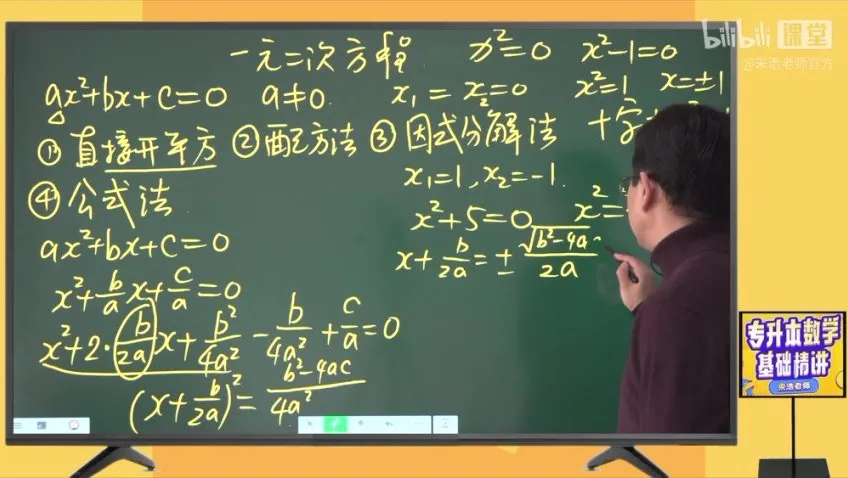 bilibili 课堂
@宋浩老师官方
一元二次方程 x²=0 x²-1=0
ax²+bx+c=0 a≠0 x₁=x₂=0 x²=1 x=±1
十字
①直接开平方 ②配方法 ③因式分解法
x₁=1, x₂=-1.
④公式法
x²+5=0 x²=
ax²+bx+c=0
x+b/2a=±√b²-4a/2a
x²+b/a x+c/a=0
x²+2·b/2a x+b²/4a²-b/4a²+c/a=0
(x+b/2a)²=b²-4ac/4a²
专升本数学
基础精讲
宋浩老师